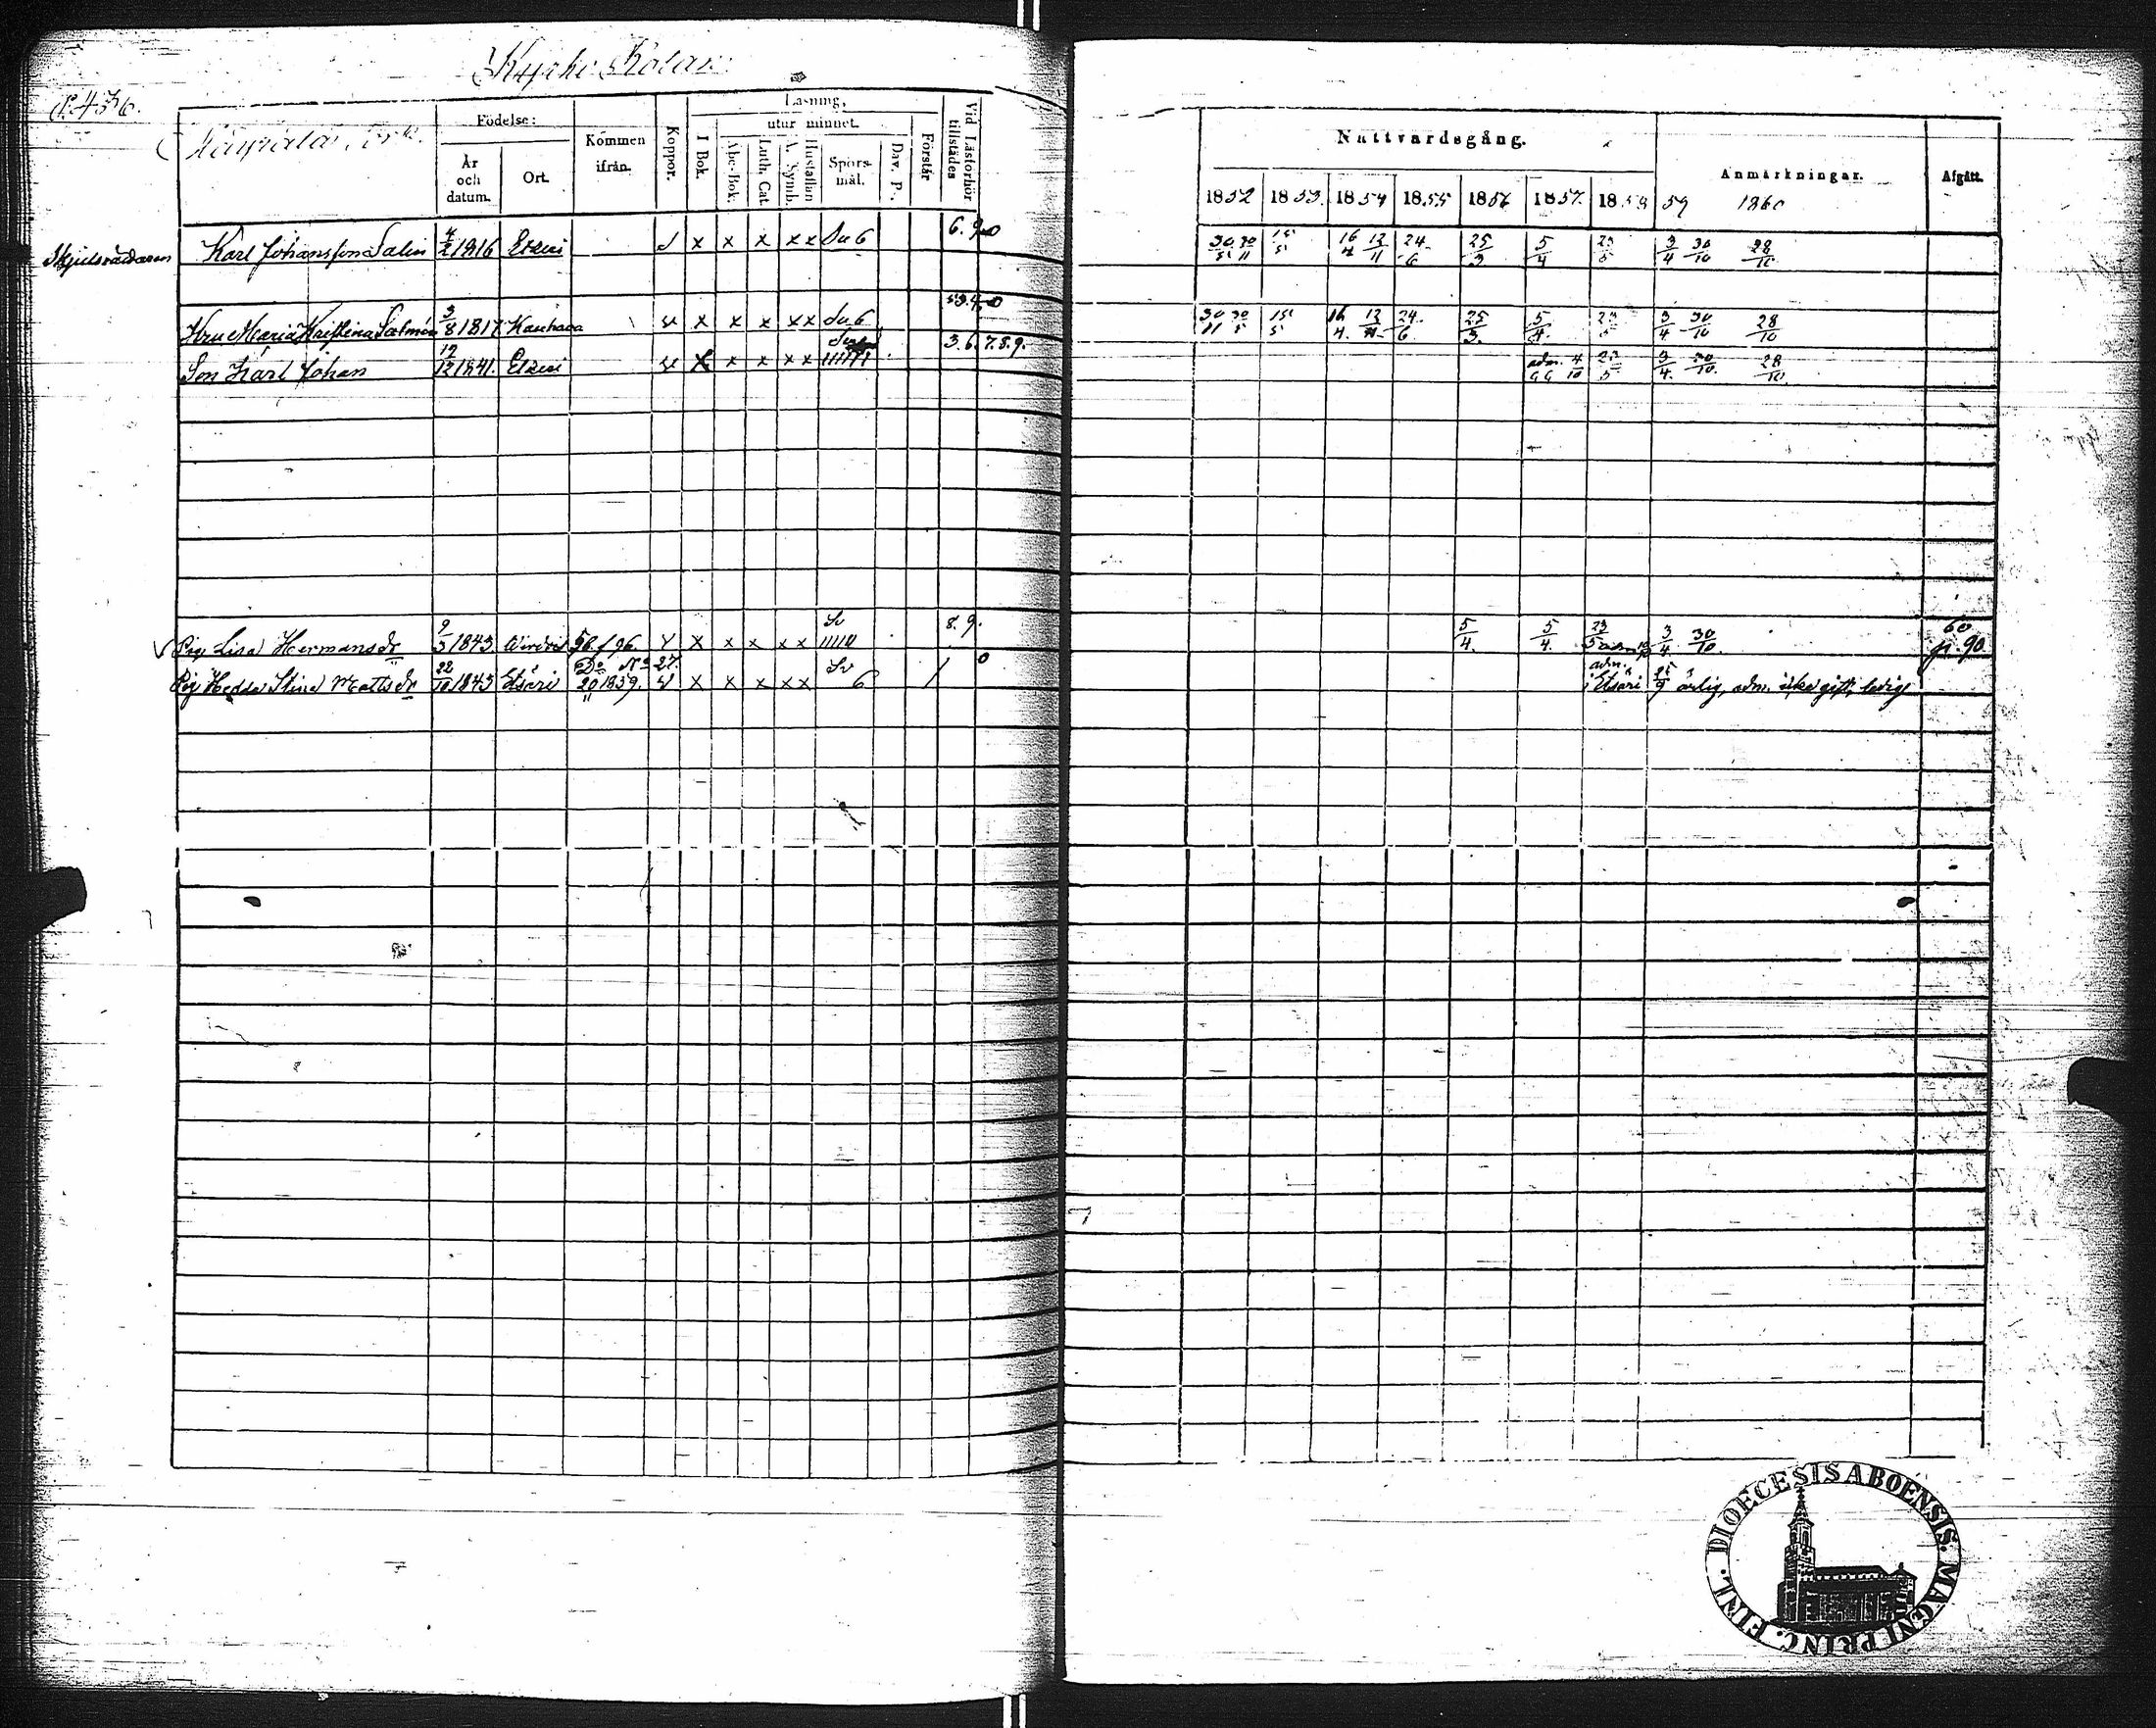 Kyrko
P. 436.
Födelse:
År och datum.
Ort.
Kommen ifrån.
Koppor.
Läsning,
I Bok.
utur minnet.
Abc-Bok.
Luth. Cat.
A. Symb.
Hustaflan
Spörsmål.
Dav. P.
Förstår
Vid Läsförhör tillstädes
Nattvardsgång.
Anmärkningar.
Afgått.
1852 1853. 1854 1855 1856 1857. 1858 59 1860
Karl Johansson Salin 4/2 1816 Etseri x x x x x Su 6 6. 9
30/5 30/11 15/5 16/4 12/11 24/6 25/3 5/4 23/5 3/4 30/10 28/10
Hru Maria Kristina Salmén 3/8 1817 Kauhava x x x x x Su 6
30/11 30/5 15/5 16/4. 12/11 24./6. 25/3. 5/4. 23/5 3/4 30/10 28/10
Son Karl Johan 12/12 1841. Etseri x x x x x 3. 6. 7. 8. 9.
adm. 4/10 23/5 3/4. 30/10. 28/10
Pig Lisa Hermansdr 9/3 1843. Wirdois 58. f 96. x x x x x Sv 8. 9.
5/4. 5/4. 23/5 adm 3/4. 30/10. 60 p. 90.
Pig Hedda Stina Mattsdr 22/10 1843 Etsäri No 27. 20/11 1859. x x x x x Sv 6
adm. i Etsäri 25/9 ärlig, adm. icke gift, ledig
FINL. DIOECESIS ABOENSIS. MAGNI PRINC.